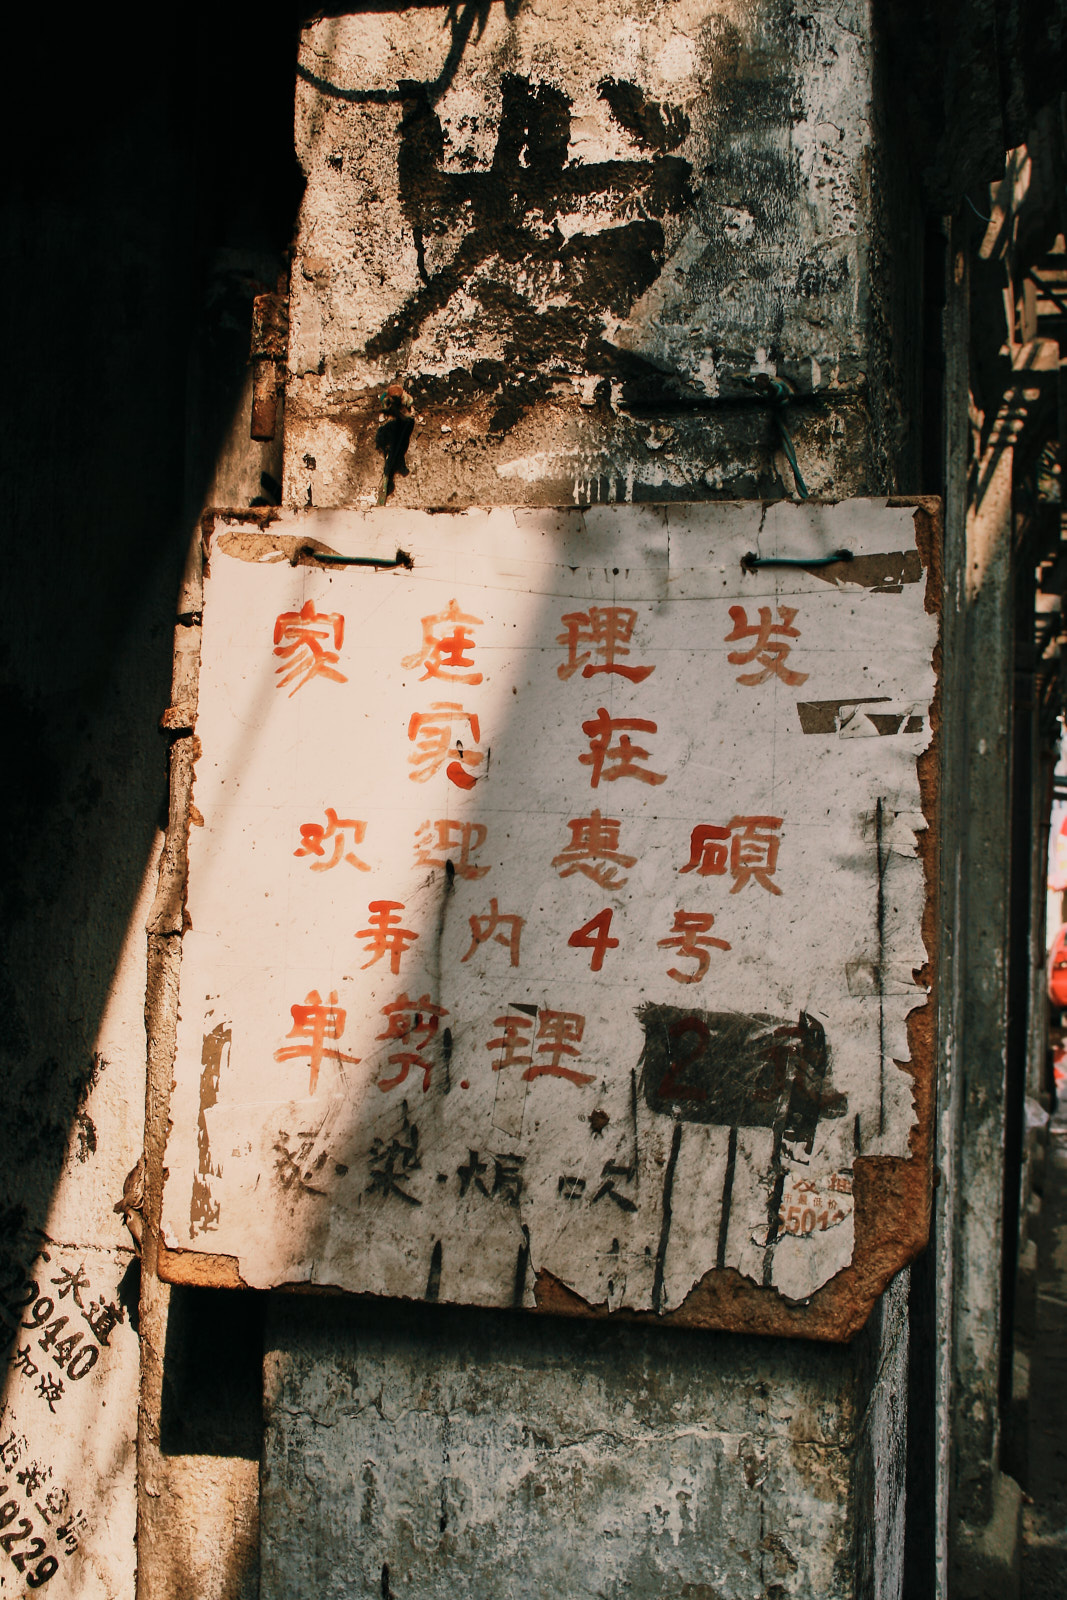 发
家庭理发
家在
欢迎惠顾
弄内4号
单剪.理2元
烫.染.焗.吹
水道
29440
加液
空调
9229